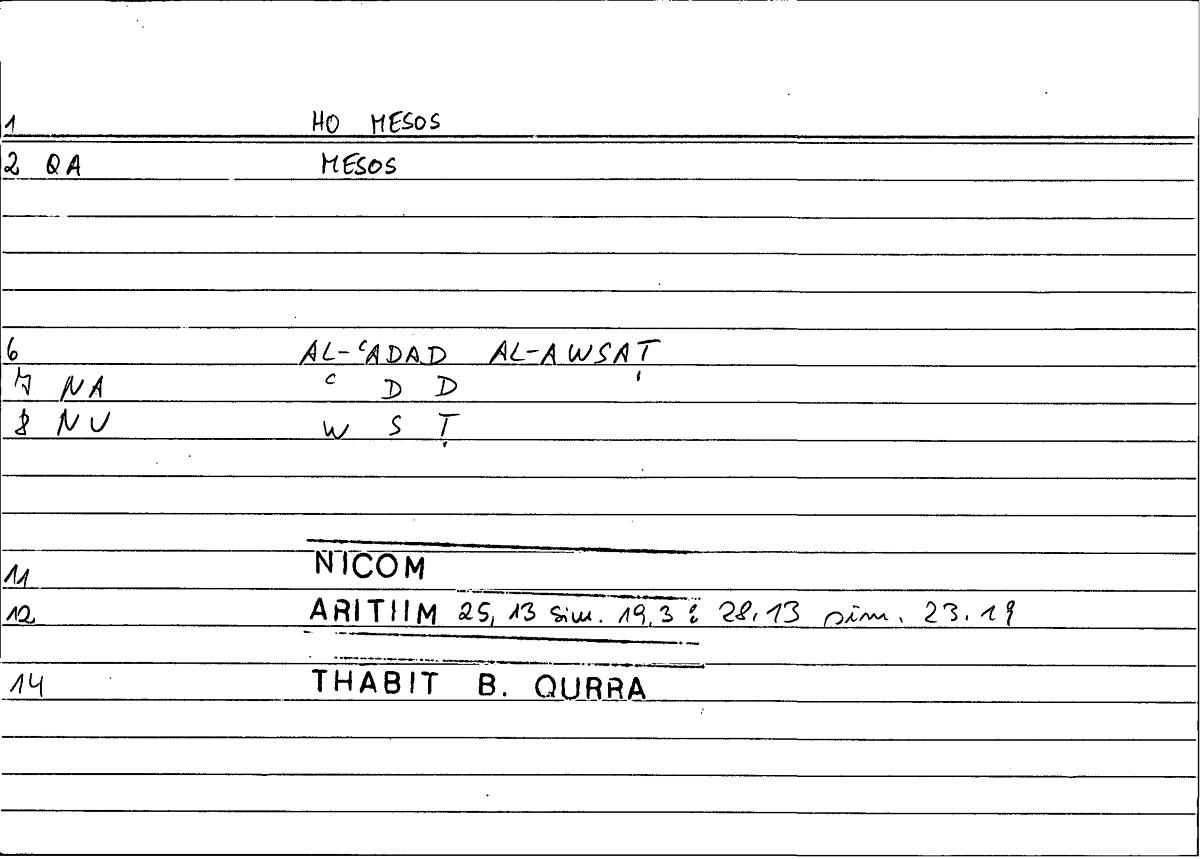 1 HO MESOS
2 QA MESOS
6 AL-ʿADAD AL-AWSAṬ
7 NA ʿ D D
8 NU W S Ṭ
11 NICOM
12 ARITIIM 25, 13 sim. 19,3 ; 28,13 sim. 23.19
14 THABIT B. QURRA